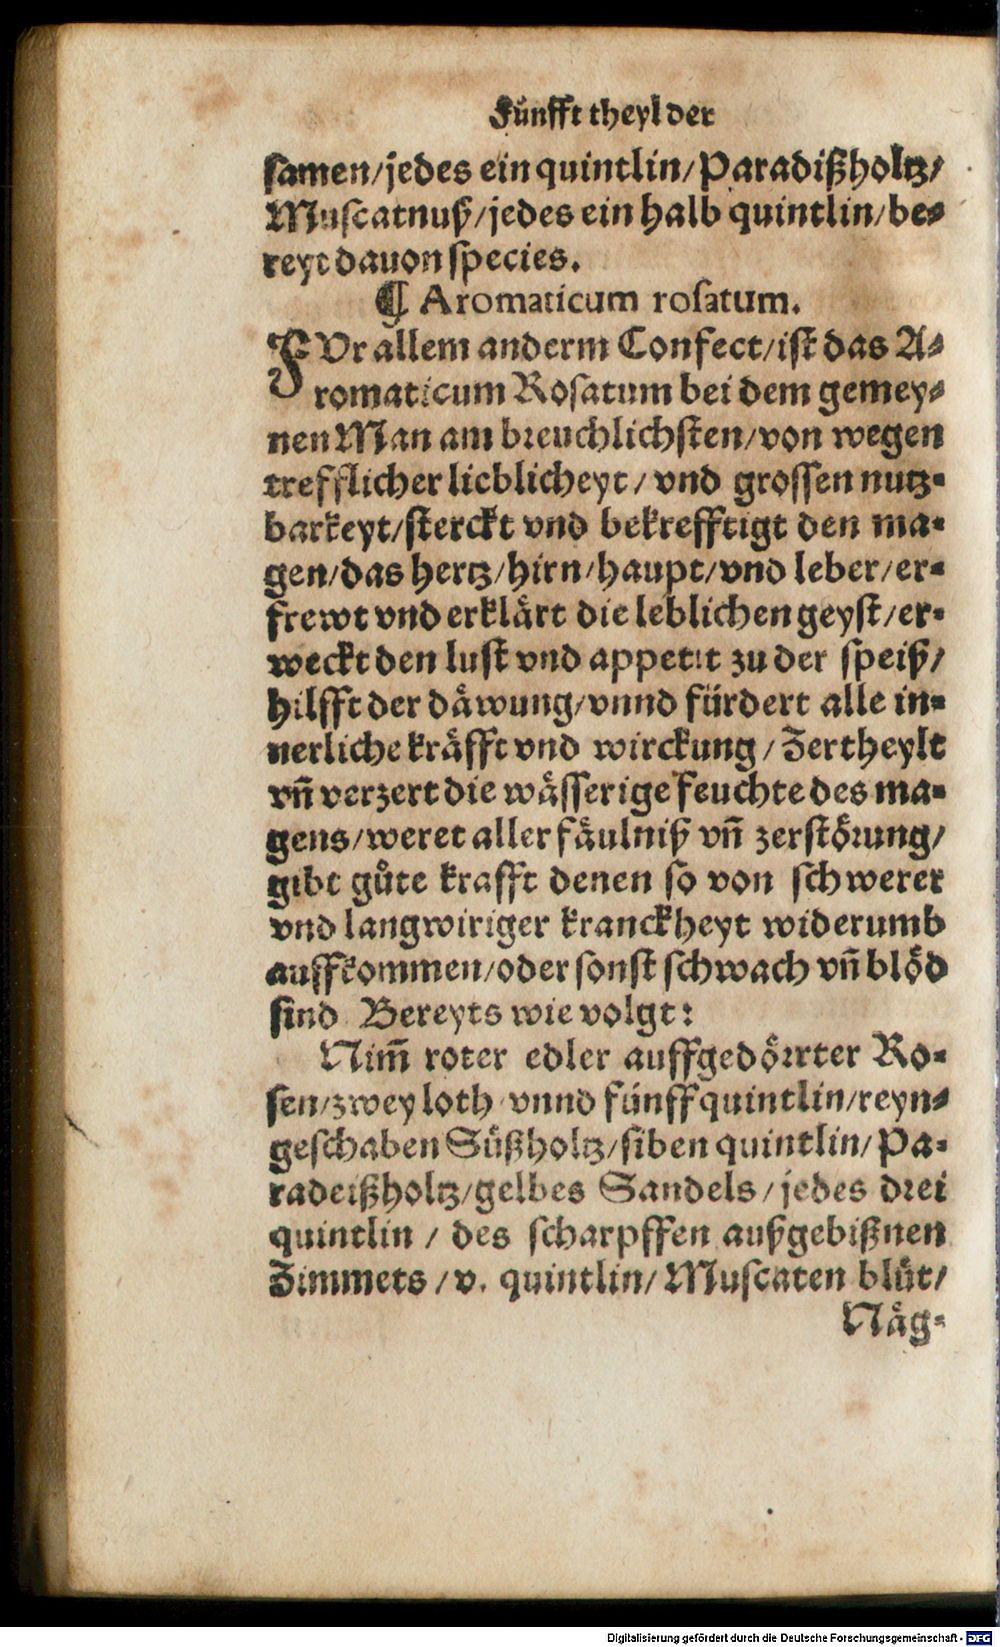 Fünfft theyl der
samen/jedes ein quintlin/Paradißholtz/
Muscatnuß/jedes ein halb quintlin/be⸗
reyt dauon species.
¶ Aromaticum rosatum.
FVr allem anderm Confect/ist das A⸗
romaticum Rosatum bei dem gemey⸗
nen Man am breuchlichsten/von wegen
trefflicher lieblicheyt/vnd grossen nutz⸗
barkeyt/sterckt vnd bekrefftigt den ma⸗
gen/das hertz/hirn/haupt/vnd leber/er⸗
frewt vnd erklärt die leblichen geyst/er⸗
weckt den lust vnd appetit zu der speiß/
hilfft der däwung/vnnd fürdert alle in⸗
nerliche kräfft vnd wirckung/Zertheylt
vñ verzert die wässerige feuchte des ma⸗
gens/weret aller fäulniß vñ zerstörung/
gibt gůte krafft denen so von schwerer
vnd langwiriger kranckheyt widerumb
auffkommen/oder sonst schwach vñ blöd
sind Bereyts wie volgt:
Nim̃ roter edler auffgedörrter Ro⸗
sen/zwey loth vnnd fünff quintlin/reyn⸗
geschaben Süßholtz/siben quintlin/Pa⸗
radeißholtz/gelbes Sandels/jedes drei
quintlin/des scharpffen außgebißnen
Zimmets/v. quintlin/Muscaten blüt/
Näg⸗
Digitalisierung gefördert durch die Deutsche Forschungsgemeinschaft - DFG